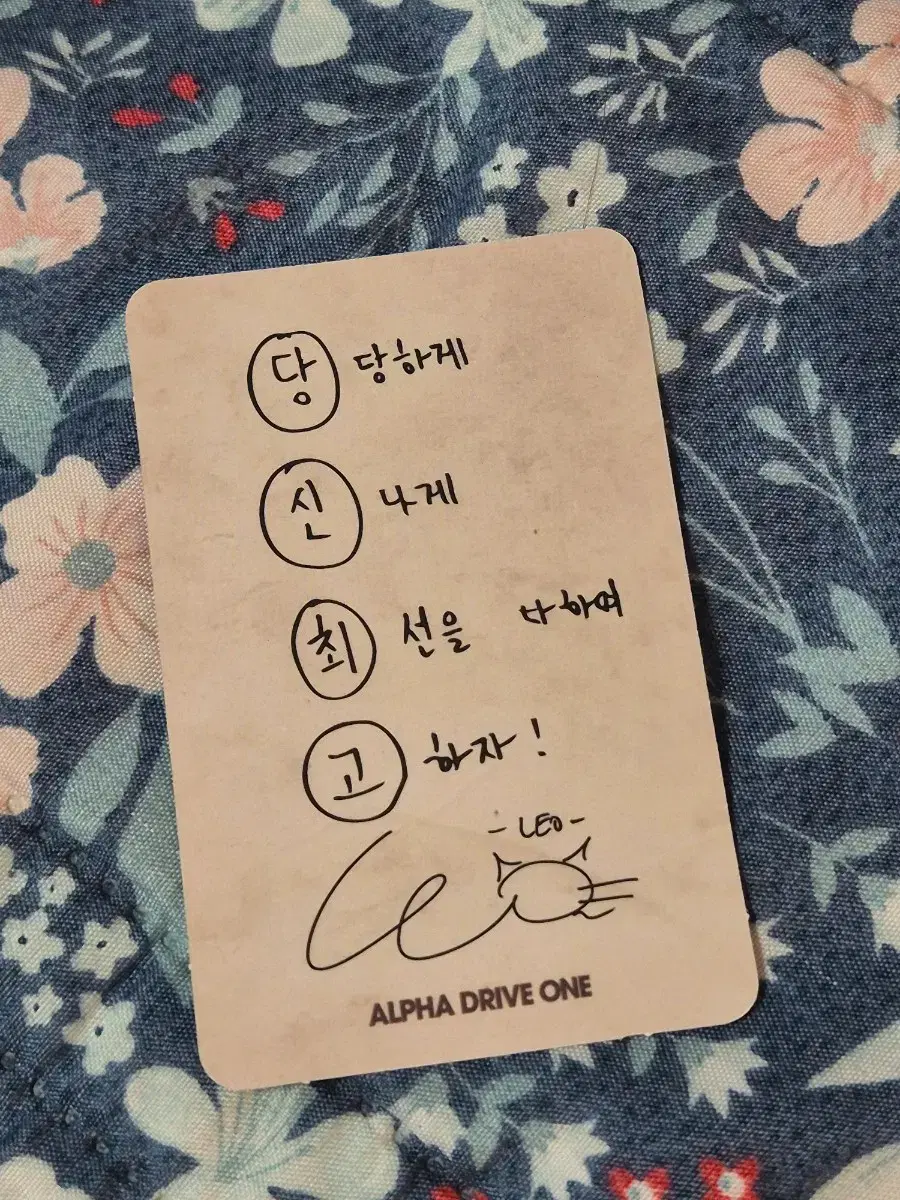 당 당하게
신 나게
최 선을 다하여
고 하자!
-LEO-
Leo
ALPHA DRIVE ONE